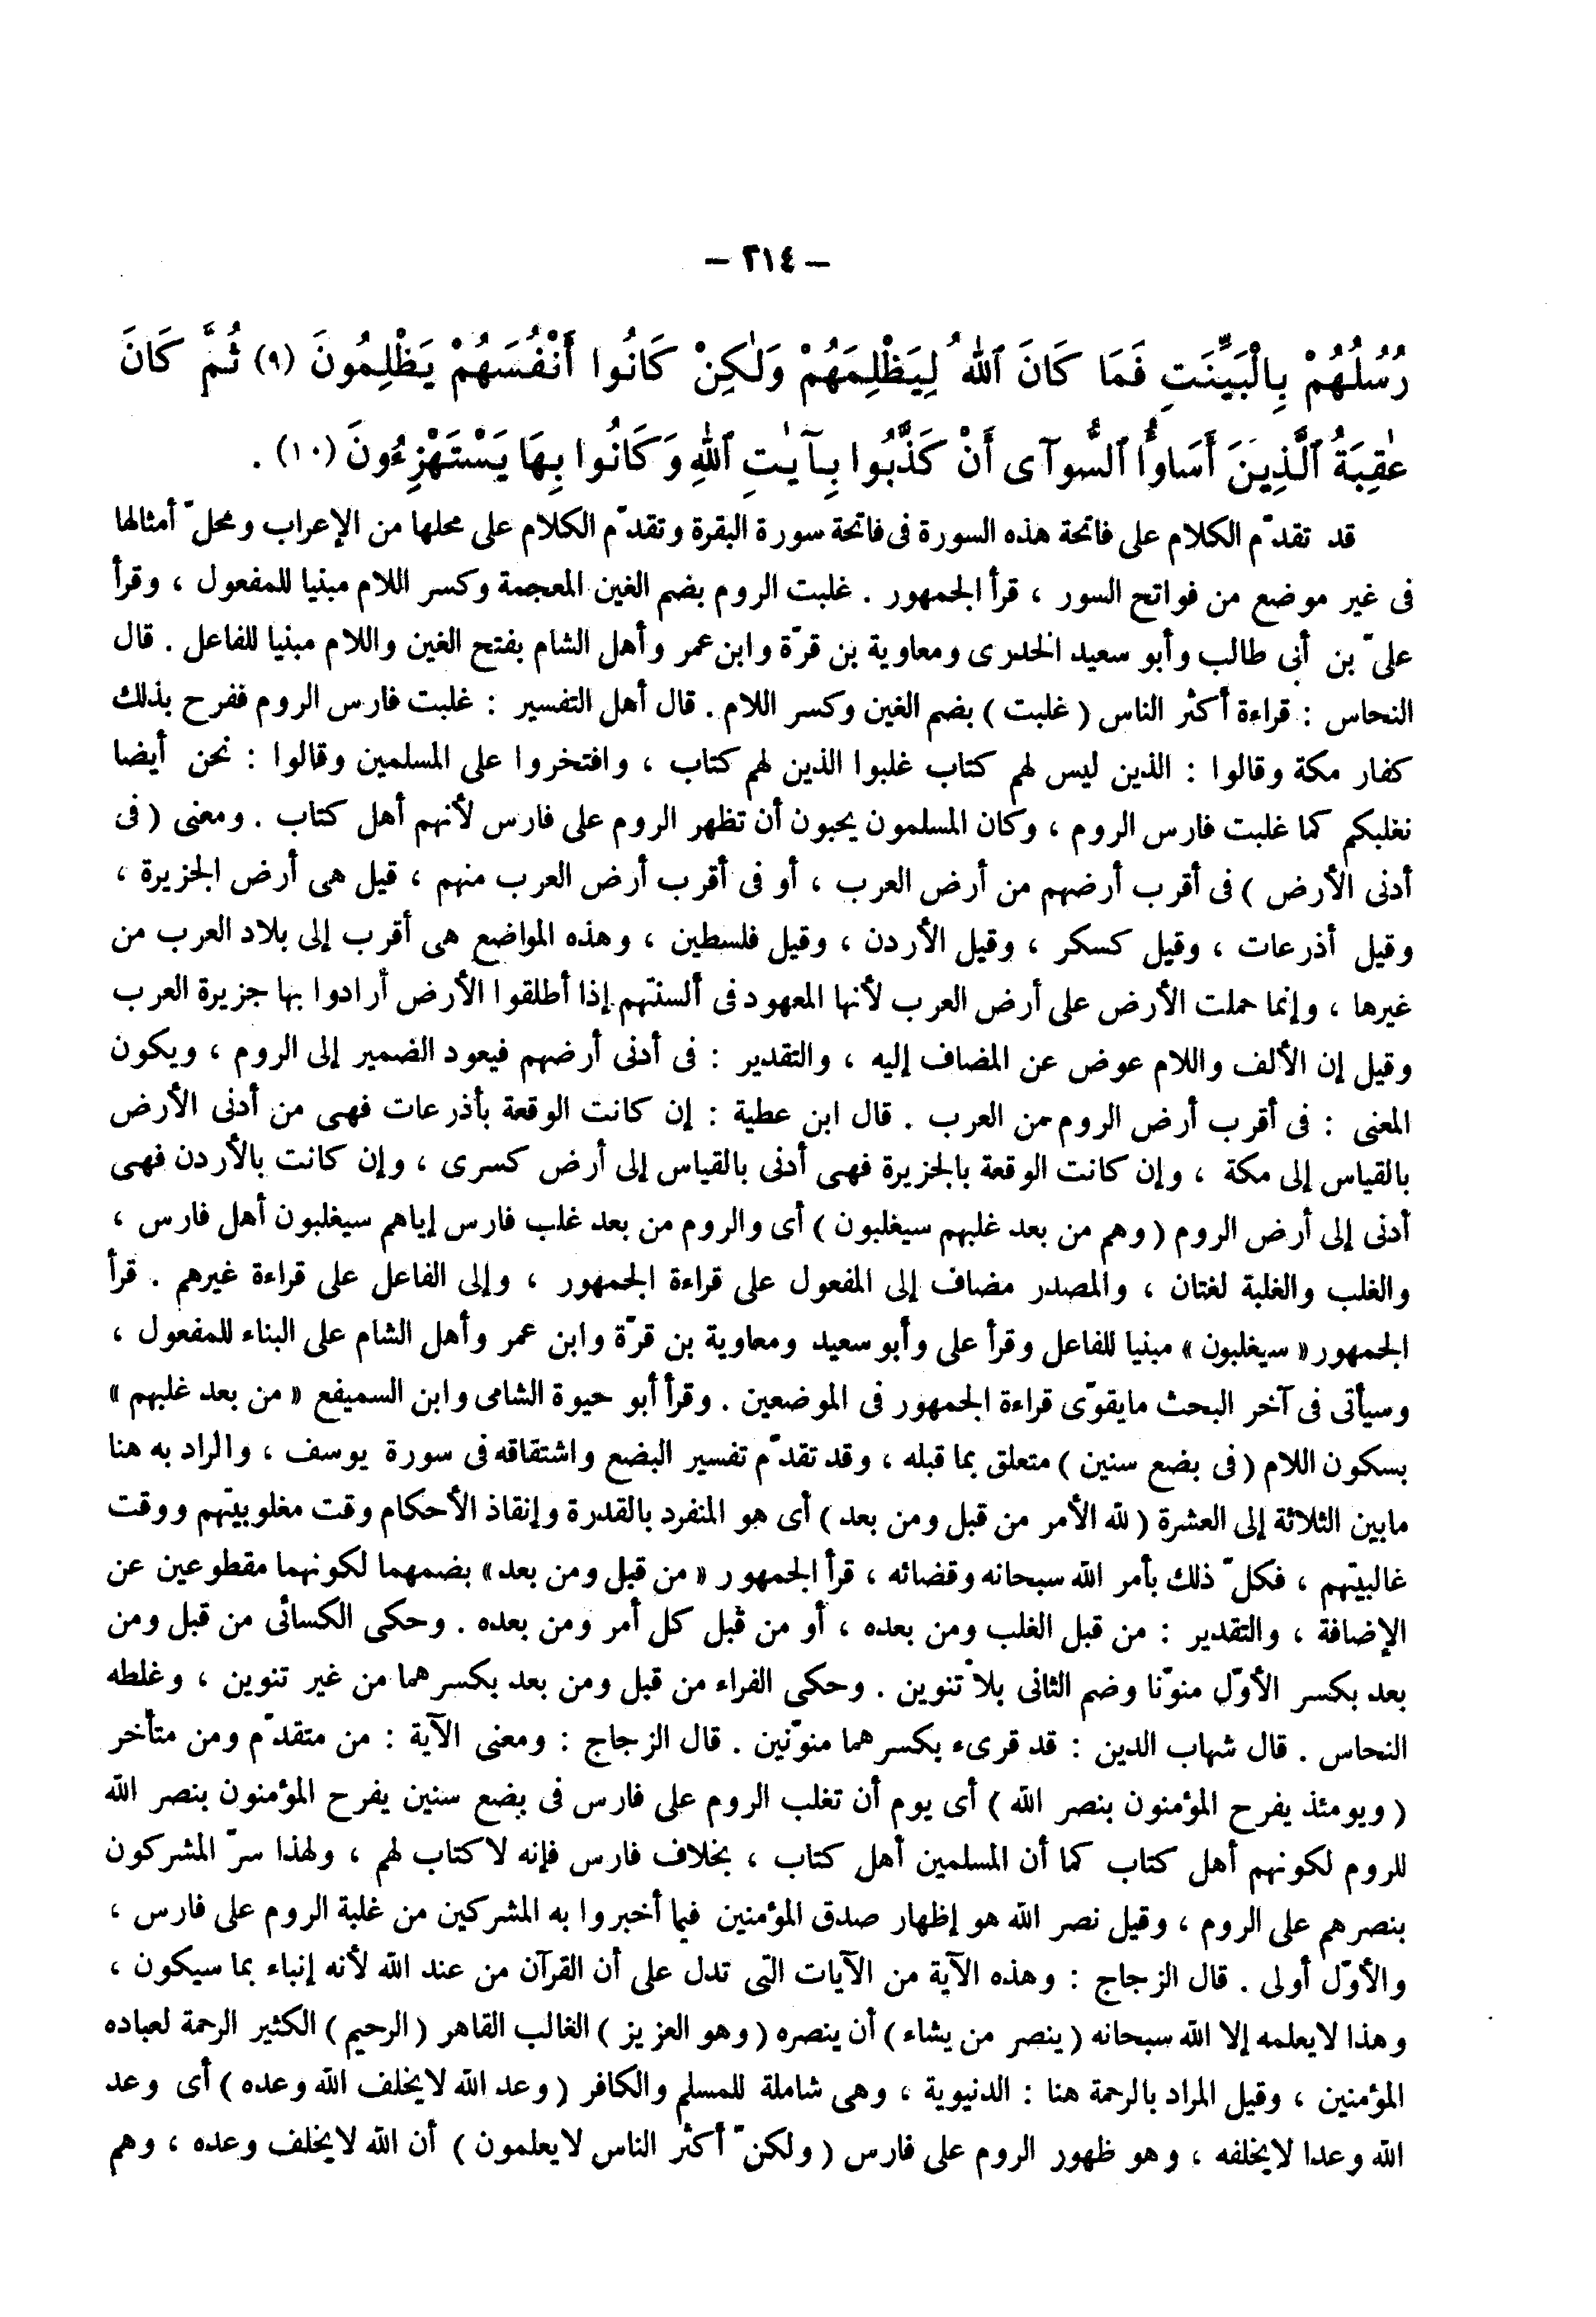 – ٢١٤ –
رُسُلُهُمْ بِالْبَيِّنَتِ فَمَا كَانَ ٱللهُ لِيَظْلِمَهُمْ وَلَٰكِنْ كَانُوا أَنْفُسَهُمْ يَظْلِمُونَ (٩) ثُمَّ كَانَ
عَٰقِبَةُ ٱلَّذِينَ أَسَاوأُ ٱلسُّوآى أَنْ كَذَّبُوا بِآيَٰتِ ٱللهِ وَكَانُوا بِهَا يَسْتَهْزِءُونَ (١٠) .
قد تقدّم الكلام على فاتحة هذه السورة فى فاتحة سورة البقرة وتقدّم الكلام على محلها من الإعراب ومحلّ أمثالها
فى غير موضع من فواتح السور ، قرأ الجمهور . غلبت الروم بضم الغين المعجمة وكسر اللام مبنيا للمفعول ، وقرأ
علىّ بن أبى طالب وأبو سعيد الخدرى ومعاوية بن قرّة وابن عمر وأهل الشام بفتح الغين واللام مبنيا للفاعل . قال
النحاس : قراءة أكثر الناس ( غلبت ) بضم الغين وكسر اللام . قال أهل التفسير : غلبت فارس الروم ففرح بذلك
كفار مكة وقالوا : الذين ليس لهم كتاب غلبوا الذين لهم كتاب ، وافتخروا على المسلمين وقالوا : نحن أيضا
نغلبكم كما غلبت فارس الروم ، وكان المسلمون يحبون أن تظهر الروم على فارس لأنهم أهل كتاب . ومعنى ( فى
أدنى الأرض ) فى أقرب أرضهم من أرض العرب ، أو فى أقرب أرض العرب منهم ، قيل هى أرض الجزيرة ،
وقيل أذرعات ، وقيل كسكر ، وقيل الأردن ، وقيل فلسطين ، وهذه المواضع هى أقرب إلى بلاد العرب من
غيرها ، وإنما حملت الأرض على أرض العرب لأنها المعهود فى ألسنتهم إذا أطلقوا الأرض أرادوا بها جزيرة العرب
وقيل إن الألف واللام عوض عن المضاف إليه ، والتقدير : فى أدنى أرضهم فيعود الضمير إلى الروم ، ويكون
المعنى : فى أقرب أرض الروم من العرب . قال ابن عطية : إن كانت الوقعة بأذرعات فهى من أدنى الأرض
بالقياس إلى مكة ، وإن كانت الوقعة بالجزيرة فهى أدنى بالقياس إلى أرض كسرى ، وإن كانت بالأردن فهى
أدنى إلى أرض الروم ( وهم من بعد غلبهم سيغلبون ) أى والروم من بعد غلب فارس إياهم سيغلبون أهل فارس ،
والغلب والغلبة لغتان ، والمصدر مضاف إلى المفعول على قراءة الجمهور ، وإلى الفاعل على قراءة غيرهم . قرأ
الجمهور « سيغلبون » مبنيا للفاعل وقرأ على وأبو سعيد ومعاوية بن قرّة وابن عمر وأهل الشام على البناء للمفعول ،
وسيأتى فى آخر البحث مايقوّى قراءة الجمهور فى الموضعين . وقرأ أبو حيوة الشامى وابن السميفع « من بعد غلبهم »
بسكون اللام ( فى بضع سنين ) متعلق بما قبله ، وقد تقدّم تفسير البضع واشتقاقه فى سورة يوسف ، والراد به هنا
مابين الثلاثة إلى العشرة ( لله الأمر من قبل ومن بعد ) أى هو المنفرد بالقدرة وإنقاذ الأحكام وقت مغلوبيتهم ووقت
غالبيتهم ، فكلّ ذلك بأمر الله سبحانه وقضائه ، قرأ الجمهور « من قبل ومن بعد » بضمهما لكونهما مقطوعين عن
الإضافة ، والتقدير : من قبل الغلب ومن بعده ، أو من قبل كل أمر ومن بعده . وحكى الكسائى من قبل ومن
بعد بكسر الأوّل منوّنا وضم الثانى بلا تنوين . وحكى الفراء من قبل ومن بعد بكسرهما من غير تنوين ، وغلطه
النحاس . قال شهاب الدين : قد قرىء بكسرهما منوّنين . قال الزجاج : ومعنى الآية : من متقدّم ومن متأخر
( ويومئذ يفرح المؤمنون بنصر الله ) أى يوم أن تغلب الروم على فارس فى بضع سنين يفرح المؤمنون بنصر الله
للروم لكونهم أهل كتاب كما أن المسلمين أهل كتاب ، بخلاف فارس فإنه لا كتاب لهم ، ولهذا سرّ المشركون
بنصرهم على الروم ، وقيل نصر الله هو إظهار صدق المؤمنين فيما أخبروا به المشركين من غلبة الروم على فارس ،
والأوّل أولى . قال الزجاج : وهذه الآية من الآيات التى تدل على أن القرآن من عند الله لأنه إنباء بما سيكون ،
وهذا لايعلمه إلا الله سبحانه ( ينصر من يشاء ) أن ينصره ( وهو العزيز ) الغالب القاهر ( الرحيم ) الكثير الرحمة لعباده
المؤمنين ، وقيل المراد بالرحمة هنا : الدنيوية ، وهى شاملة للمسلم والكافر ( وعد الله لايخلف الله وعده ) أى وعد
الله وعدا لايخلفه ، وهو ظهور الروم على فارس ( ولكنّ أكثر الناس لايعلمون ) أن الله لايخلف وعده ، وهم